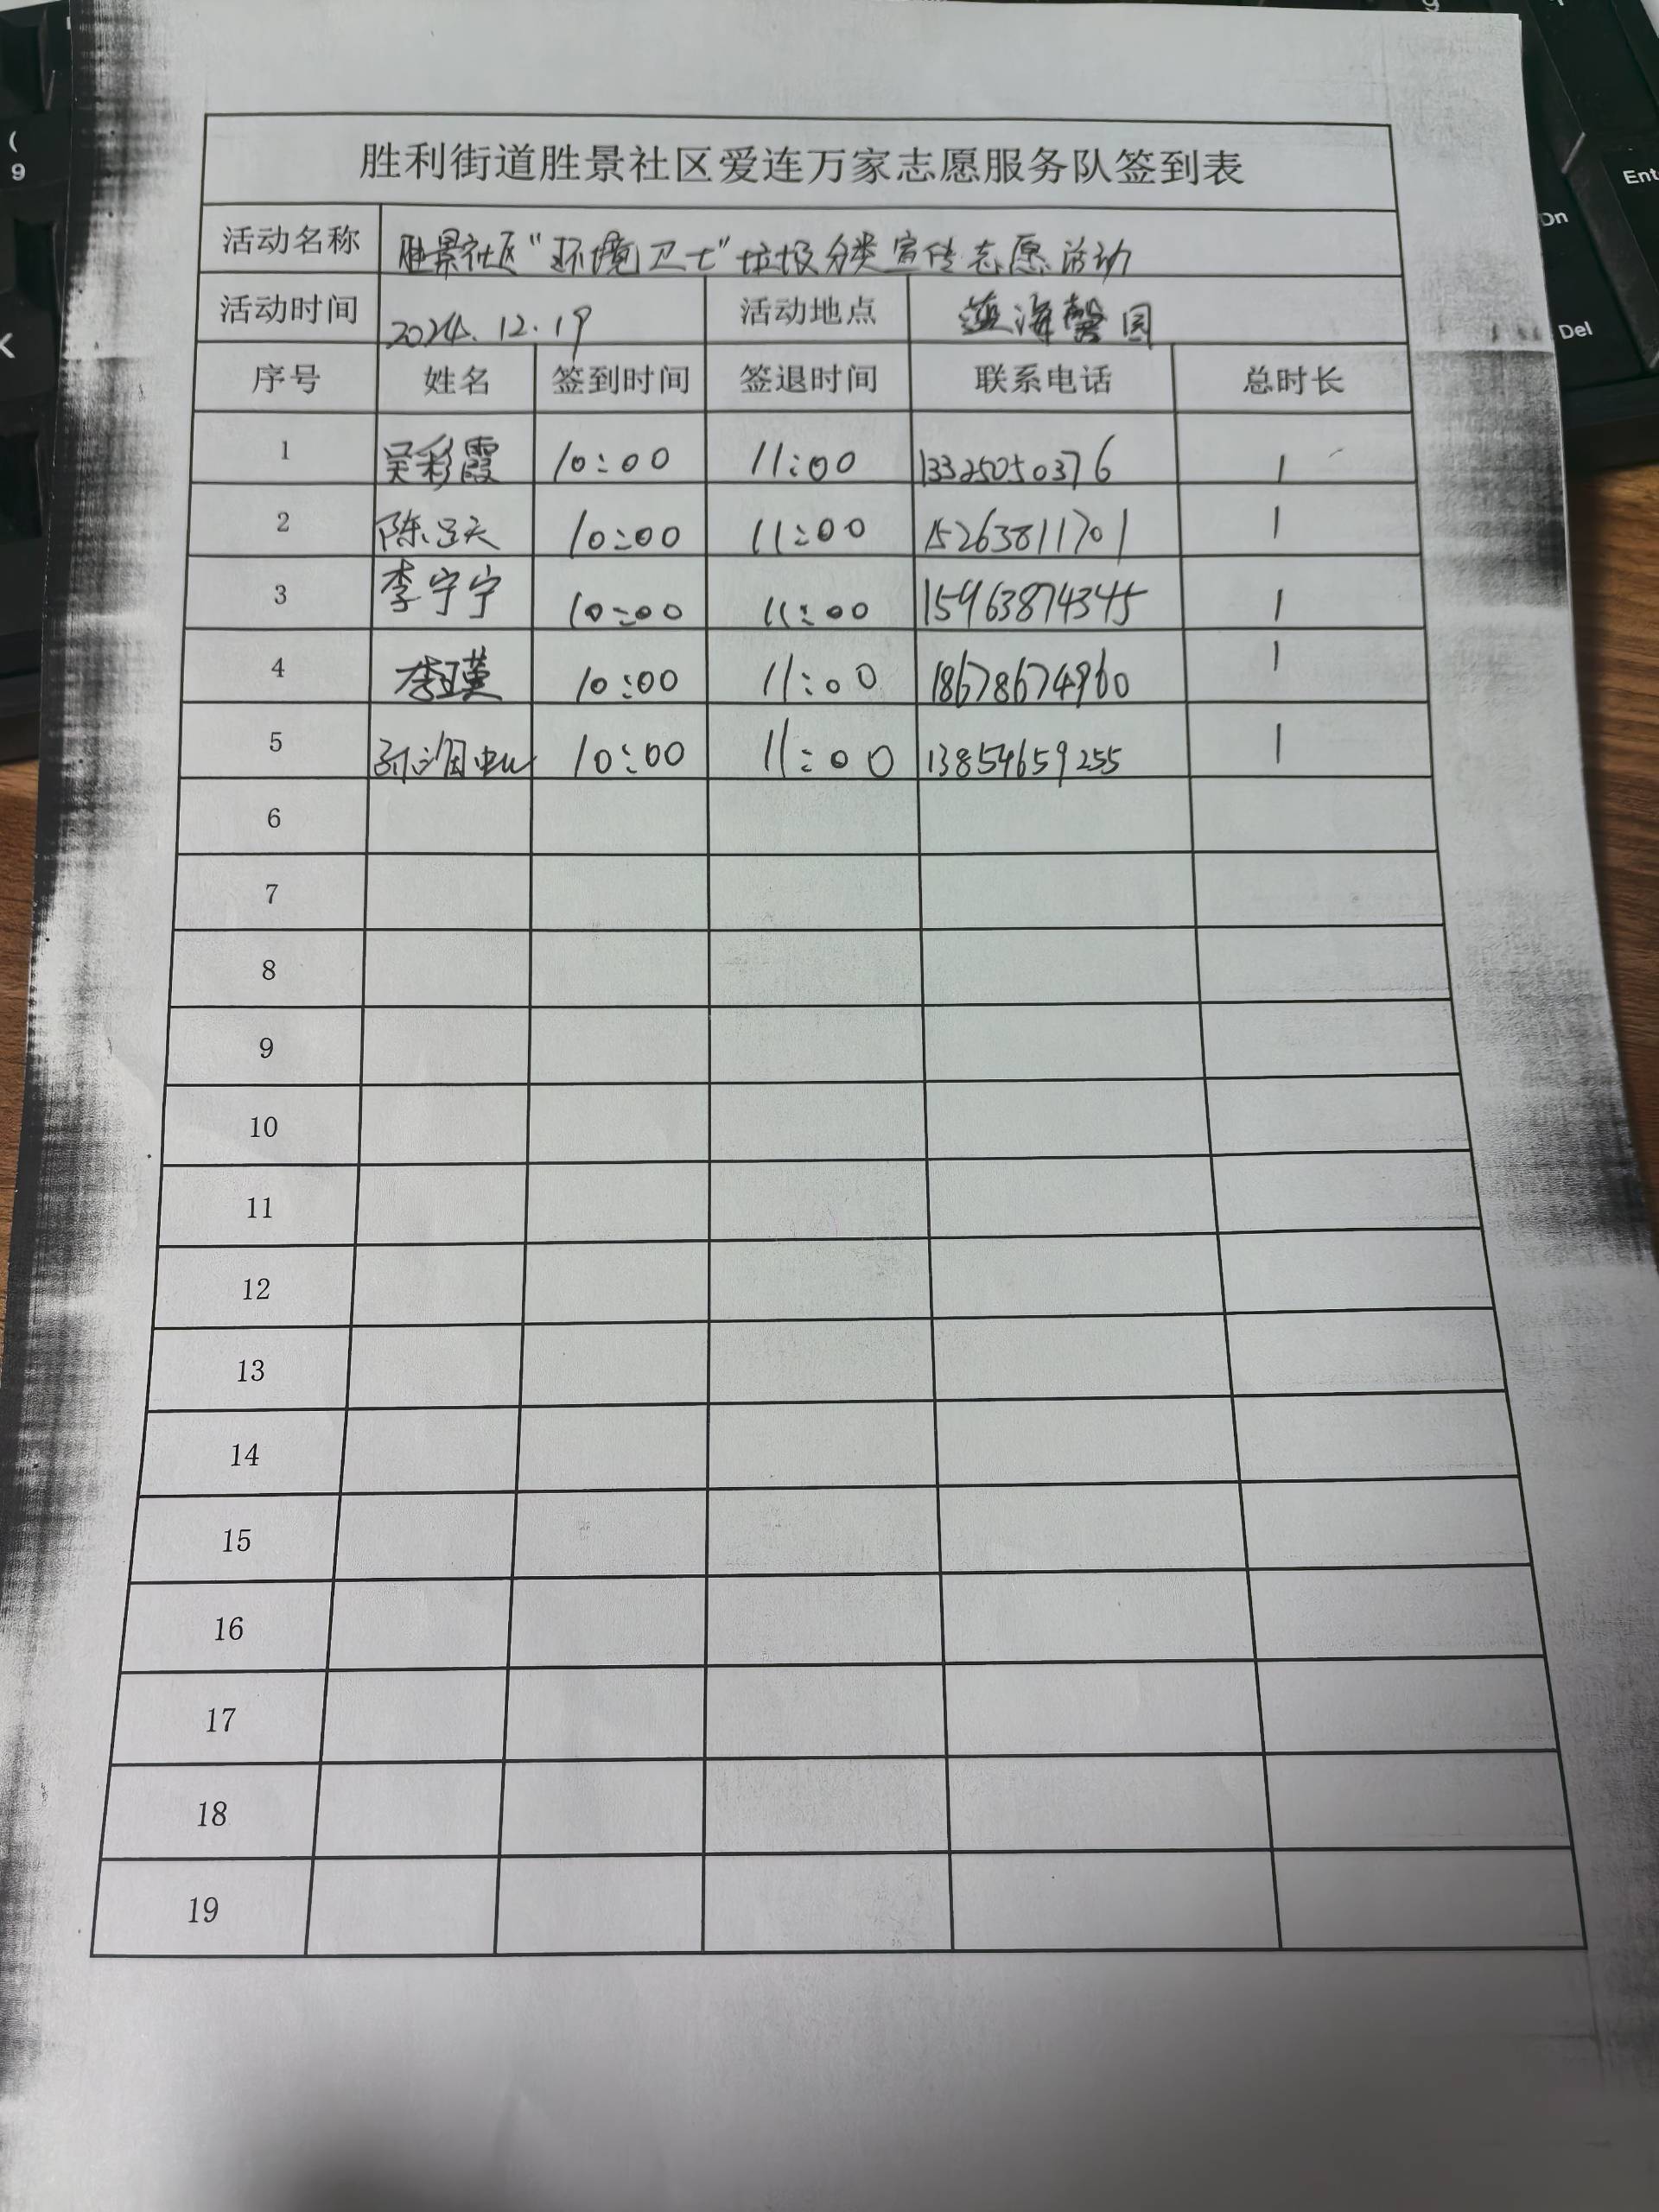 胜利街道胜景社区爱连万家志愿服务队签到表
活动名称 胜景社区“环境卫士”垃圾分类宣传志愿活动
活动时间 2024.12.19 活动地点 海馨园
序号 姓名 签到时间 签退时间 联系电话 总时长
1 吴彩霞 10:00 11:00 13325050376 1
2 陈 10:00 11:00 15263811701 1
3 李宁宁 10:00 11:00 15963874345 1
4 李瑛 10:00 11:00 18678674960 1
5 10:00 11:00 13854659255 1
6
7
8
9
10
11
12
13
14
15
16
17
18
19
(
9
K
Ent
Dn
Del